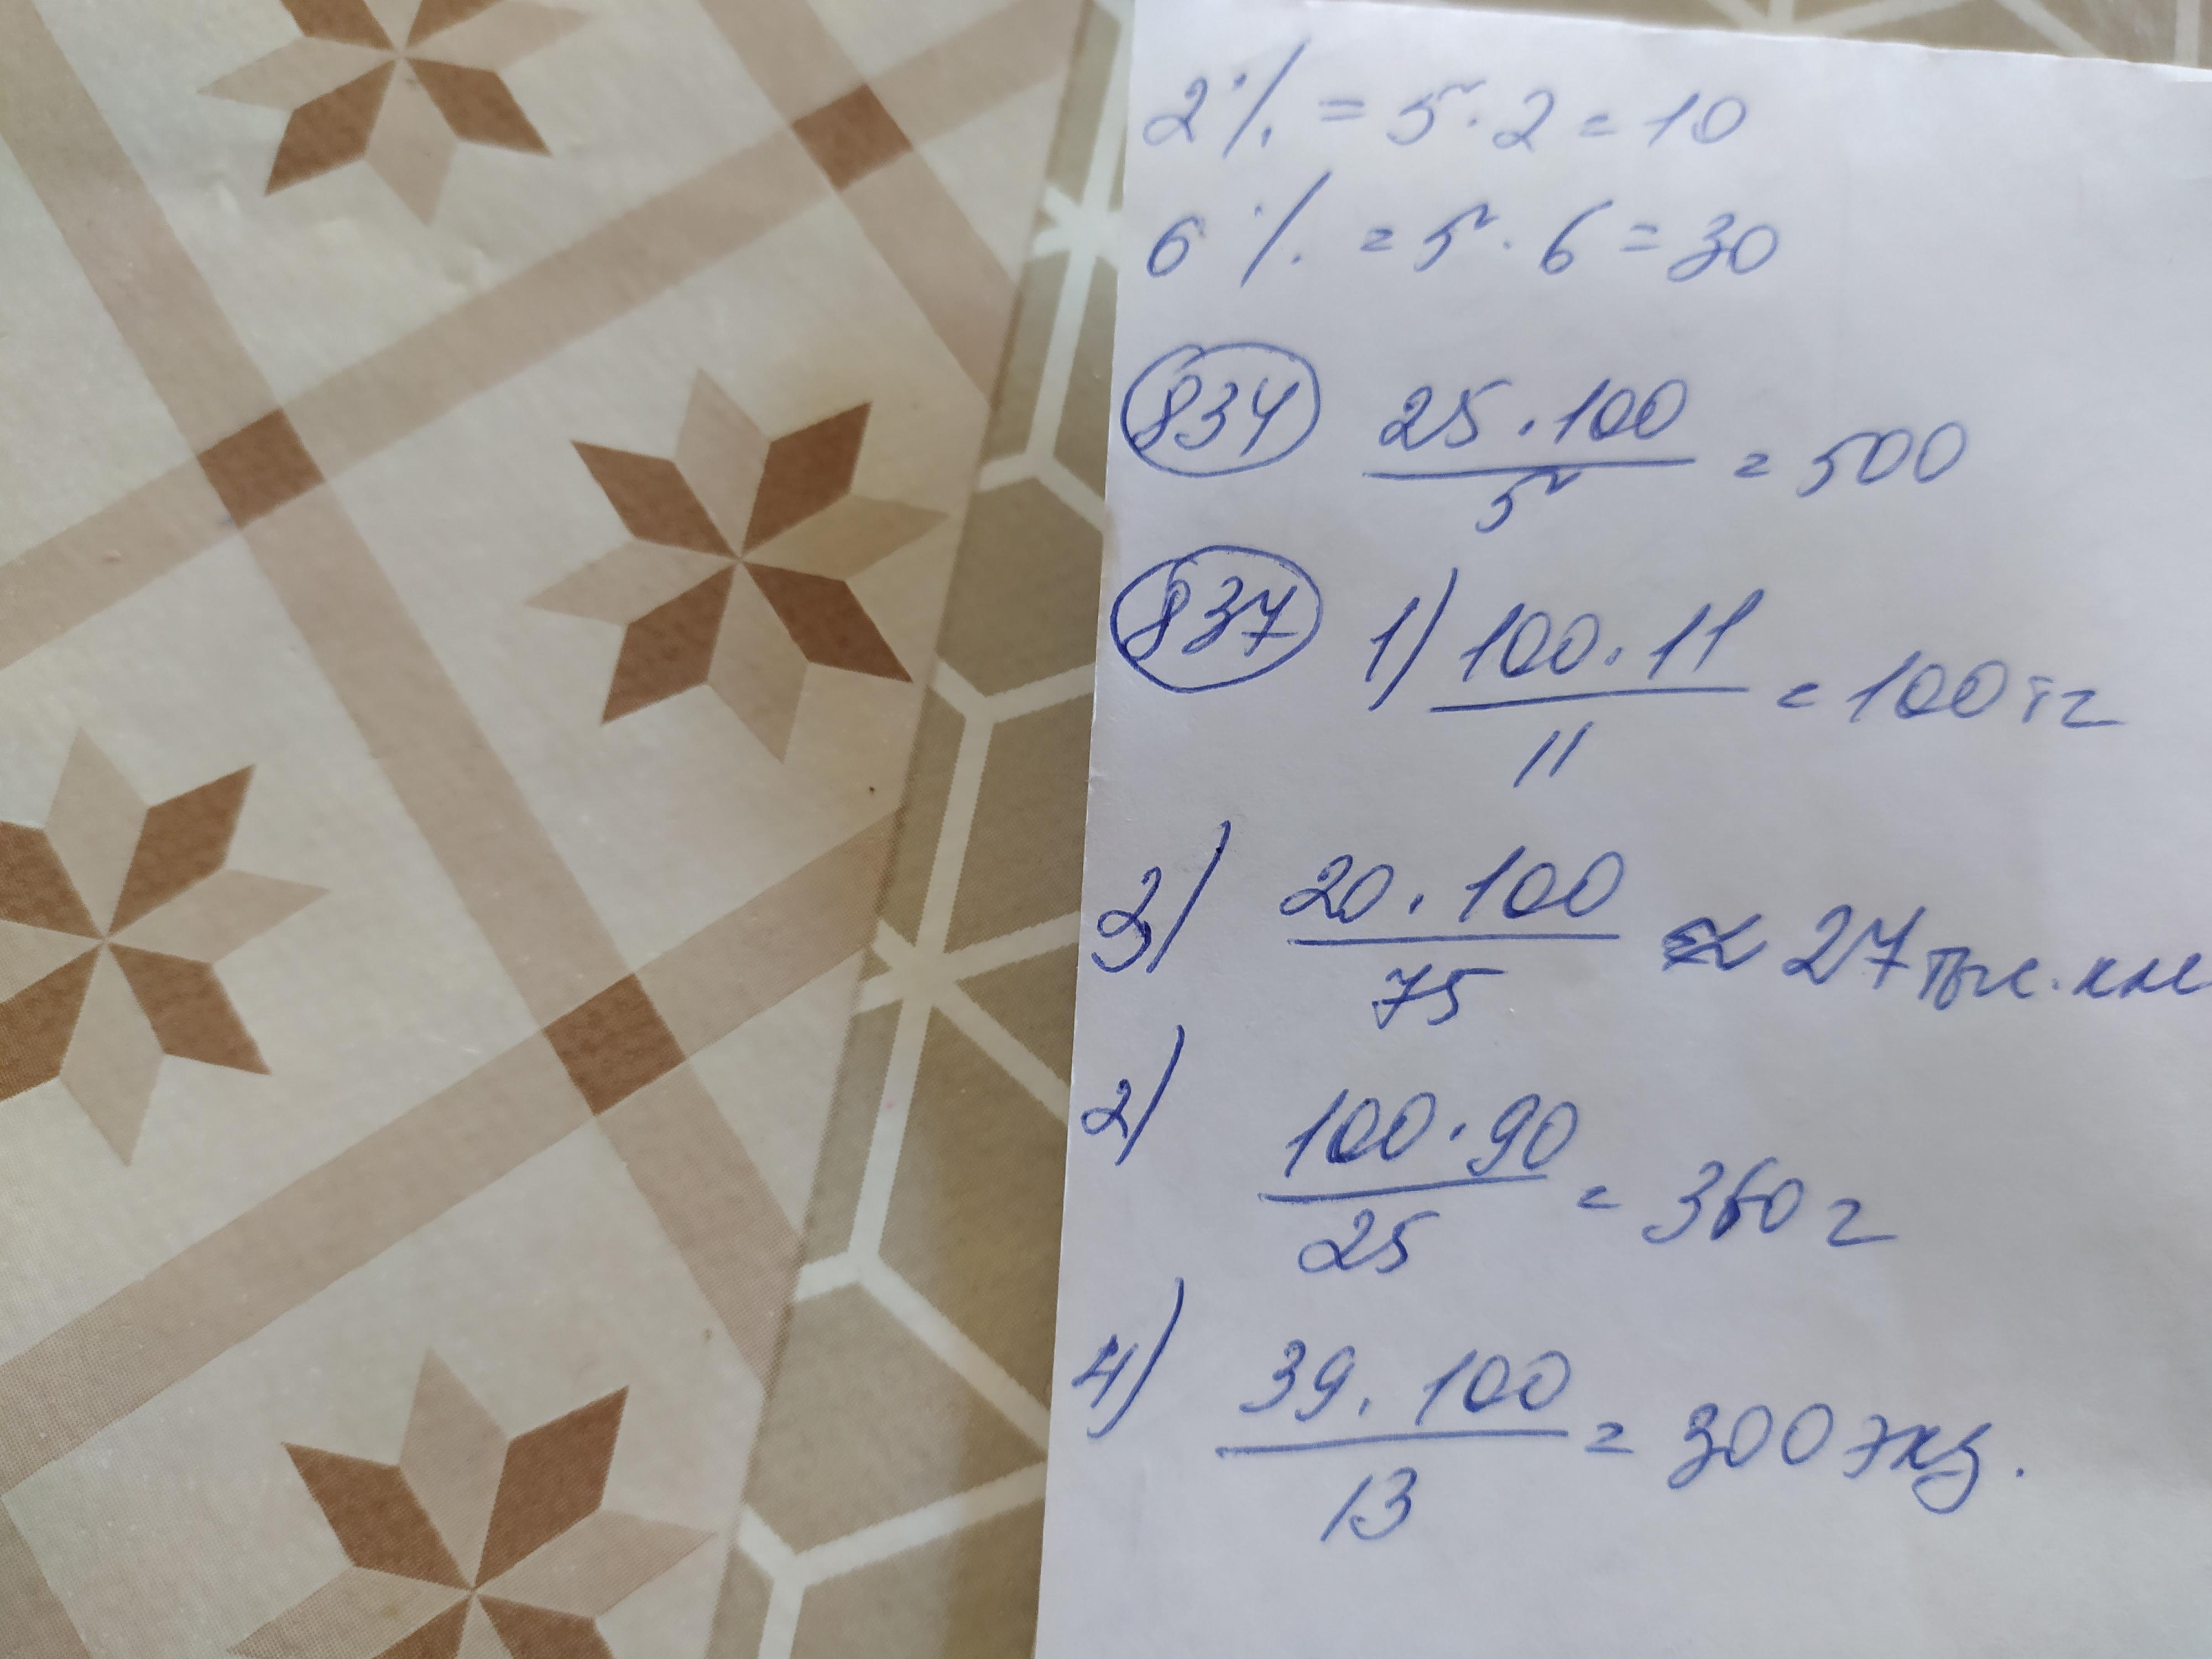 2% = 5 · 2 = 10
6% = 5 · 6 = 30
834 25 · 100 / 5 = 500
837 1) 100 · 11 / 11 = 100 тг
3) 20 · 100 / 75 ≈ 27 тыс.
2) 100 · 90 / 25 = 360 г
4) 39 · 100 / 13 = 300 экз.